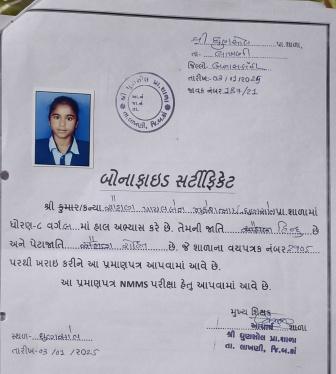 શ્રી ઘુણસોલ પ્રા.શાળા,
તા. લાખણી
જિલ્લો. બનાસકાંઠા
તારીખ-03/01/2025
જાવક નંબર 287/21
બોનાફાઇડ સર્ટીફિકેટ
શ્રી કુમાર/કન્યા પ્રા.શાળામાં
ધોરણ-૮ વર્ગ માં હાલ અભ્યાસ કરે છે. તેમની જાતિ હિન્દુ છે
અને પેટાજાતિ છે. જે શાળાના વયપત્રક નંબર 2905
પરથી ખરાઇ કરીને આ પ્રમાણપત્ર આપવામાં આવે છે.
આ પ્રમાણપત્ર NMMS પરીક્ષા હેતુ આપવામાં આવે છે.
મુખ્ય શિક્ષક
આચાર્ય શાળા
શ્રી ઘુણસોલ પ્રા.શાળા
તા. લાખણી, જિ.બ.કાં
સ્થળ- ઘુણસોલ
તારીખ-03/01/2025